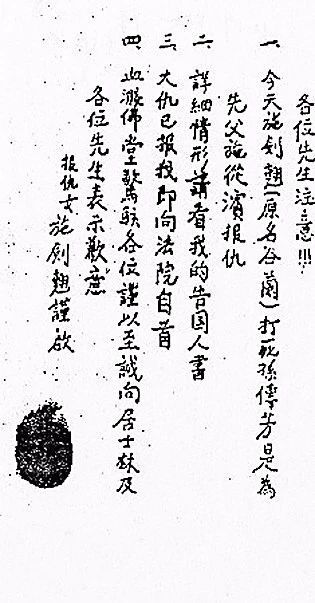 各位先生注意!!!
一、今天施剑翘(原名谷蘭)打死孫傳芳是為
先父施從濱报仇
二、詳細情形請看我的告国人書
三、大仇已报我即向法院自首
四、血濺佛堂驚駭各位謹以至誠向居士林及
各位先生表示歉意
报仇女施剑翘謹啟